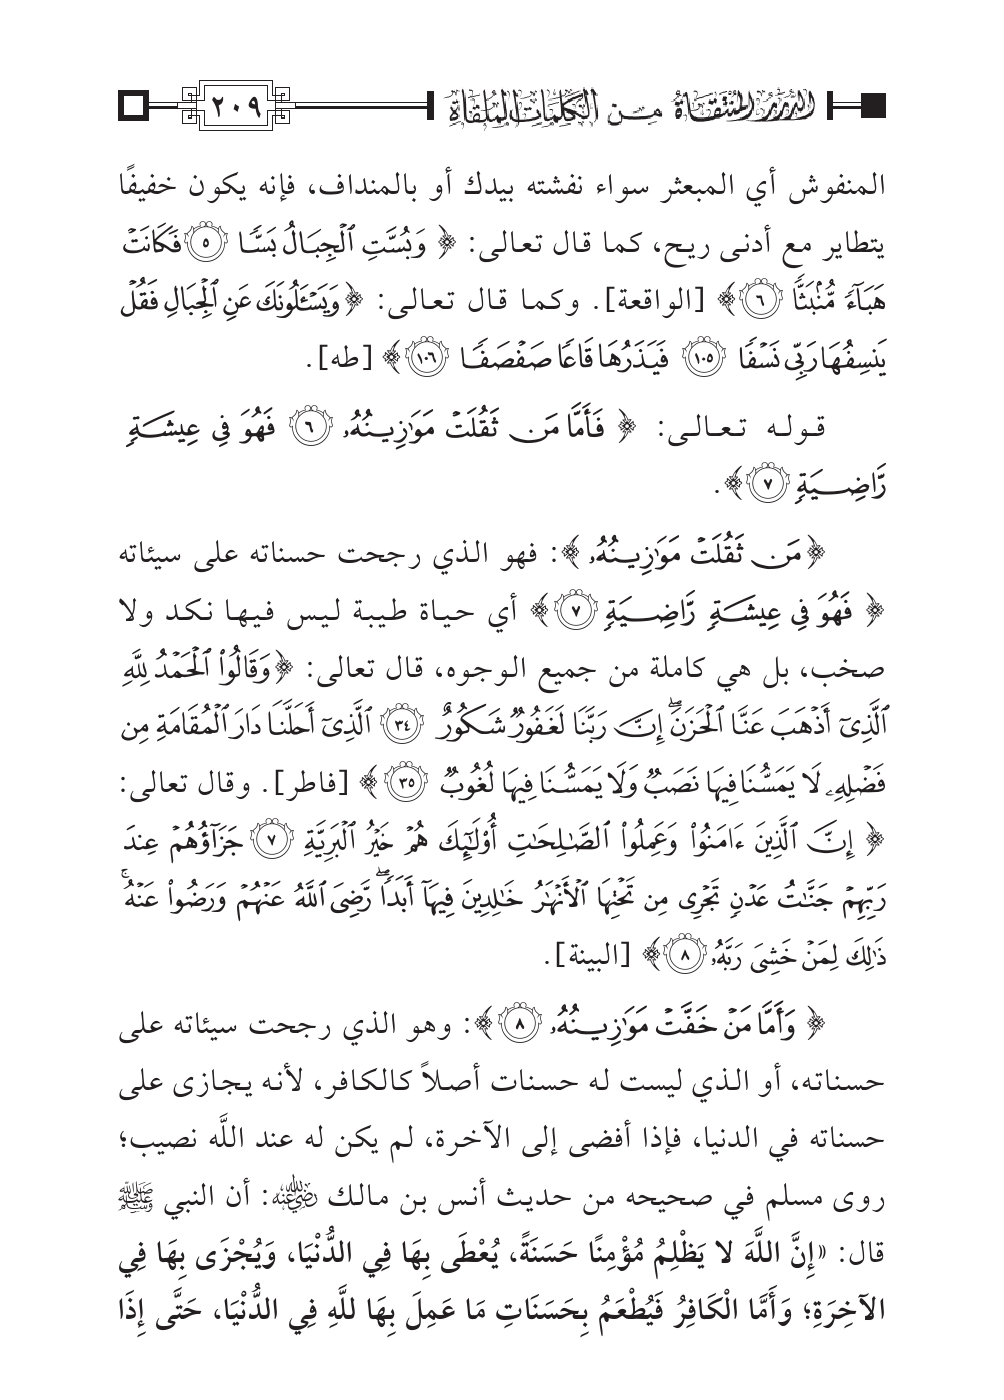 الدرر المنتقاة من الكلمات الملقاة ٢٠٩
المنفوش أي المبعثر سواء نفشته بيدك أو بالمنداف، فإنه يكون خفيفًا
يتطاير مع أدنى ريح، كما قال تعالى: ﴿ وَبُسَّتِ ٱلْجِبَالُ بَسًّا ٥ فَكَانَتْ
هَبَآءً مُّنۢبَثًّا ٦ ﴾ [الواقعة]. وكما قال تعالى: ﴿ وَيَسْـَٔلُونَكَ عَنِ ٱلْجِبَالِ فَقُلْ
يَنسِفُهَا رَبِّى نَسْفًا ١٠٥ فَيَذَرُهَا قَاعًا صَفْصَفًا ١٠٦ ﴾ [طه].
قوله تعالى: ﴿ فَأَمَّا مَن ثَقُلَتْ مَوَٰزِينُهُۥ ٦ فَهُوَ فِى عِيشَةٍ
رَّاضِيَةٍ ٧ ﴾.
﴿ مَن ثَقُلَتْ مَوَٰزِينُهُۥ ﴾: فهو الذي رجحت حسناته على سيئاته
﴿ فَهُوَ فِى عِيشَةٍ رَّاضِيَةٍ ٧ ﴾ أي حياة طيبة ليس فيها نكد ولا
صخب، بل هي كاملة من جميع الوجوه، قال تعالى: ﴿ وَقَالُوا۟ ٱلْحَمْدُ لِلَّهِ
ٱلَّذِىٓ أَذْهَبَ عَنَّا ٱلْحَزَنَ ۖ إِنَّ رَبَّنَا لَغَفُورٌ شَكُورٌ ٣٤ ٱلَّذِىٓ أَحَلَّنَا دَارَ ٱلْمُقَامَةِ مِن
فَضْلِهِۦ لَا يَمَسُّنَا فِيهَا نَصَبٌ وَلَا يَمَسُّنَا فِيهَا لُغُوبٌ ٣٥ ﴾ [فاطر]. وقال تعالى:
﴿ إِنَّ ٱلَّذِينَ ءَامَنُوا۟ وَعَمِلُوا۟ ٱلصَّٰلِحَٰتِ أُو۟لَٰٓئِكَ هُمْ خَيْرُ ٱلْبَرِيَّةِ ٧ جَزَآؤُهُمْ عِندَ
رَبِّهِمْ جَنَّٰتُ عَدْنٍ تَجْرِى مِن تَحْتِهَا ٱلْأَنْهَٰرُ خَٰلِدِينَ فِيهَآ أَبَدًا ۖ رَّضِىَ ٱللَّهُ عَنْهُمْ وَرَضُوا۟ عَنْهُ ۚ
ذَٰلِكَ لِمَنْ خَشِىَ رَبَّهُۥ ٨ ﴾ [البينة].
﴿ وَأَمَّا مَنْ خَفَّتْ مَوَٰزِينُهُۥ ٨ ﴾: وهو الذي رجحت سيئاته على
حسناته، أو الذي ليست له حسنات أصلاً كالكافر، لأنه يجازى على
حسناته في الدنيا، فإذا أفضى إلى الآخرة، لم يكن له عند اللَّه نصيب؛
روى مسلم في صحيحه من حديث أنس بن مالك رضي الله عنه: أن النبي ﷺ
قال: «إِنَّ اللَّهَ لا يَظْلِمُ مُؤْمِنًا حَسَنَةً، يُعْطَى بِهَا فِي الدُّنْيَا، وَيُجْزَى بِهَا فِي
الآخِرَةِ؛ وَأَمَّا الْكَافِرُ فَيُطْعَمُ بِحَسَنَاتِ مَا عَمِلَ بِهَا للَّهِ فِي الدُّنْيَا، حَتَّى إِذَا